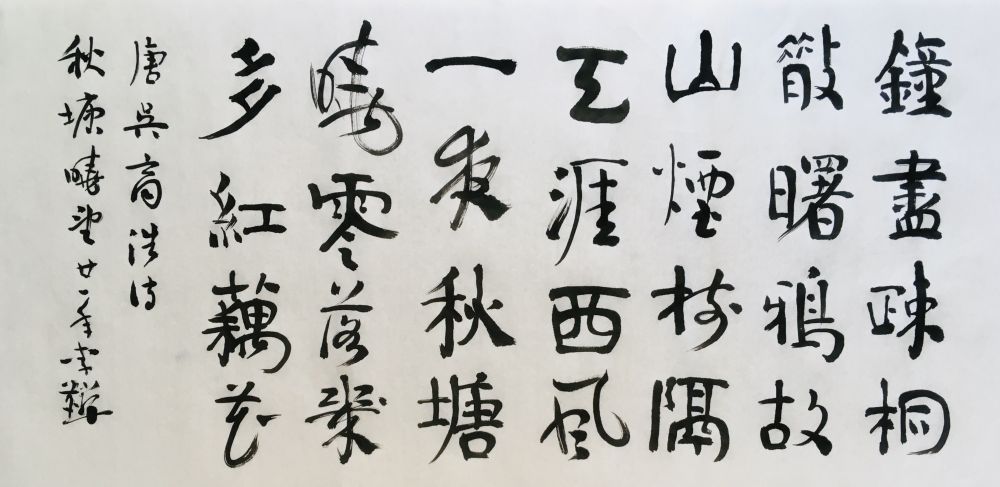 鐘盡疎桐
散曙鴉故
山煙樹隔
天涯西風
一夜秋塘
曉零落幾
多紅藕花
唐吳商浩詩
秋塘曉望廿一年李